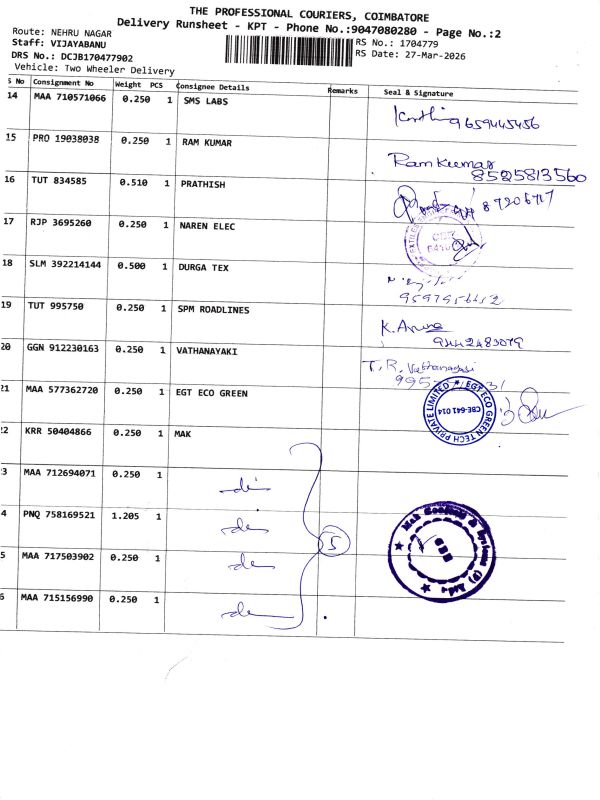 THE PROFESSIONAL COURIERS, COIMBATORE
Delivery Runsheet - KPT - Phone No.:9047080280 - Page No.:2
Route: NEHRU NAGAR
Staff: VIJAYABANU
DRS No.: DCJB170477902
Vehicle: Two Wheeler Delivery
RS No.: 1704779
RS Date: 27-Mar-2026
S No Consignment No Weight PCS Consignee Details Remarks Seal & Signature
14 MAA 710571066 0.250 1 SMS LABS 9659445456
15 PRO 19038038 0.250 1 RAM KUMAR Ram Kumar 8525813560
16 TUT 834585 0.510 1 PRATHISH
17 RJP 3695260 0.250 1 NAREN ELEC
18 SLM 392214144 0.500 1 DURGA TEX
19 TUT 995750 0.250 1 SPM ROADLINES K. Aruna 9442483079
20 GGN 912230163 0.250 1 VATHANAYAKI T. R. Vathanayaki
21 MAA 577362720 0.250 1 EGT ECO GREEN
EGT ECO GREEN TECH PRIVATE LIMITED
CBE-641 014
22 KRR 50404866 0.250 1 MAK
3 MAA 712694071 0.250 1
4 PNQ 758169521 1.205 1
5
5 MAA 717503902 0.250 1
6 MAA 715156990 0.250 1